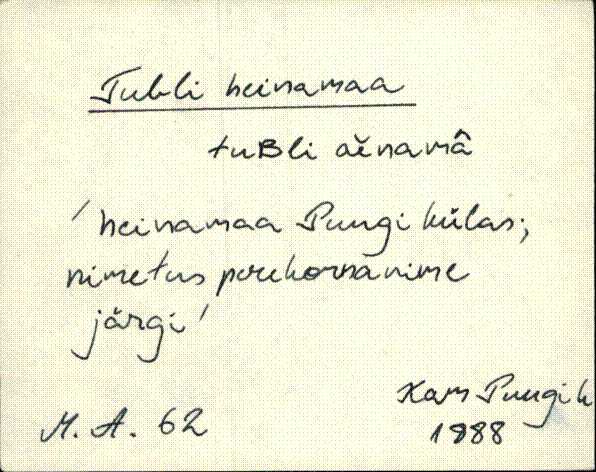 Tubli heinamaa
tuBli aĕnamâ
'heinamaa Pungi külas;
nimetus perekonnanime
järgi'
M. A. 62
Kam Pungi k
1888